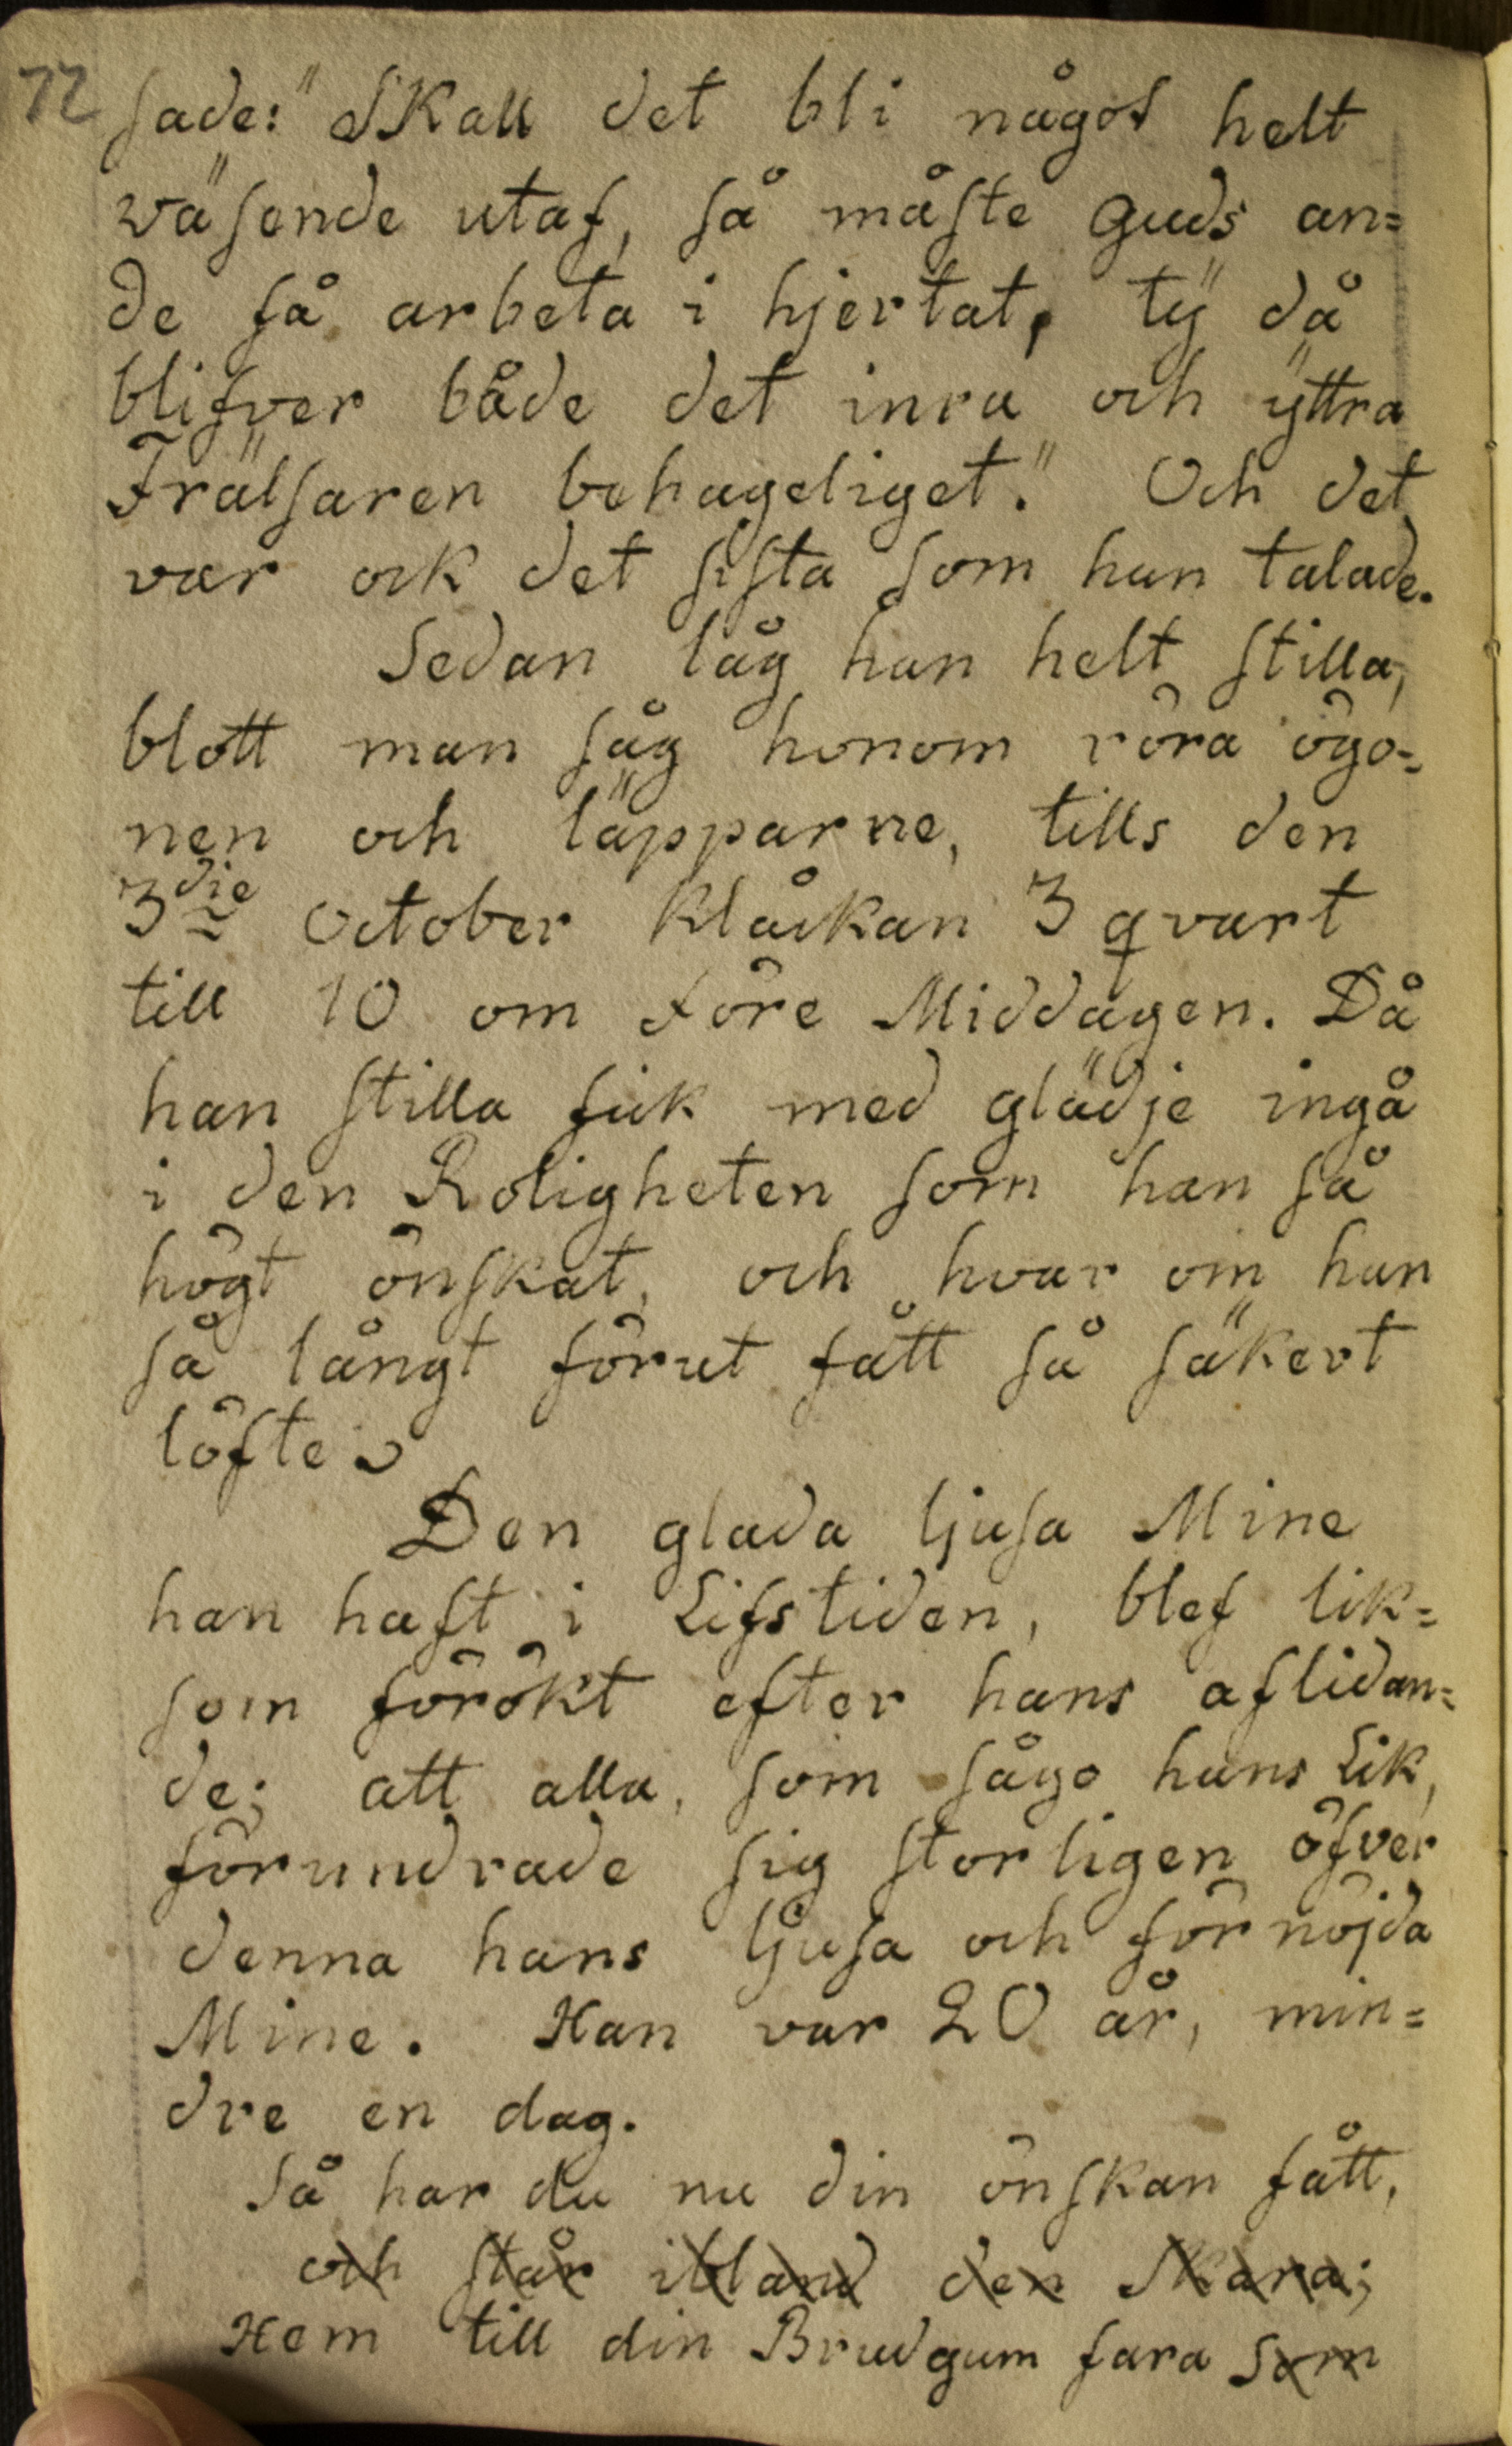 72
sade: "Skall det bli något helt
väsende utaf, så måste Guds an=
de få arbeta i hjertat, tÿ då
blifver både det inra och ÿttra
Frälsaren behageliget." Och det
var ock det sista som han talade.
Sedan låg han helt stilla,
blott man såg honom röra ögo=
nen och läpparne, tills den
3die October klåckan 3 qvart
till 10 om före Middagen. Då
han stilla fick med glädje ingå
i den Roligheten som han så
högt önskat, och hvar om han
så långt förut fått så säkert
löfte
Den glada ljusa Mine
han haft i Lifstiden, blef lik=
som förökt efter hans aflidan=
de; att alla, som sågo hans Lik,
förundrade sig storligen öfver
denna hans ljusa och förnöjda
Mine. Han var 20 år, min=
dre en dag.
Så har du nu din önskan fått,
och står ibland den Skara;
Hem till din Brudgum fara som